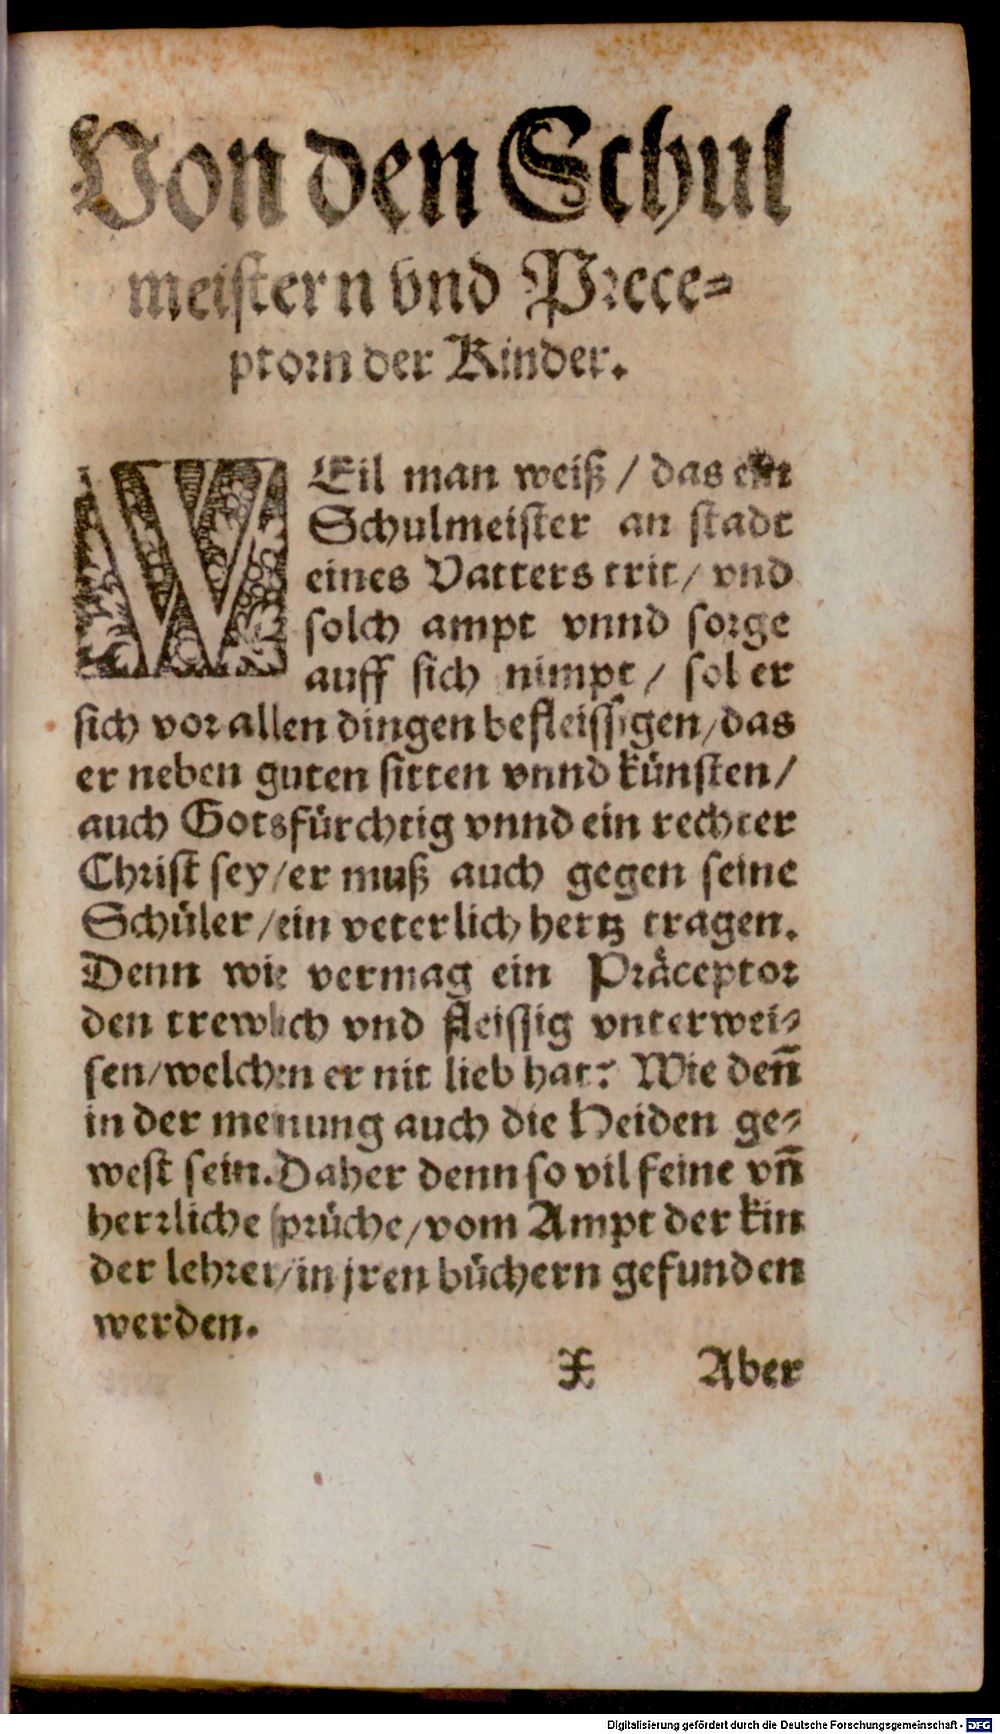 Von den Schul
meistern vnd Prece-
ptorn der Kinder.
WEil man weiß / das ein
Schulmeister an stadt
eines Vatters trit / vnd
solch ampt vnnd sorge
auff sich nimpt / sol er
sich vor allen dingen befleissigen / das
er neben guten sitten vnnd künsten /
auch Gotsfürchtig vnnd ein rechter
Christ sey / er muß auch gegen seine
Schüler / ein veterlich hertz tragen.
Denn wie vermag ein Präceptor
den trewlich vnd fleissig vnterwei-
sen / welchen er nit lieb hat? Wie deñ
in der menung auch die Heiden ge-
west sein. Daher denn so vil feine vñ
herrliche sprüche / vom Ampt der kin
der lehrer / in jren büchern gefunden
werden.
X Aber
Digitalisierung gefördert durch die Deutsche Forschungsgemeinschaft - DFG